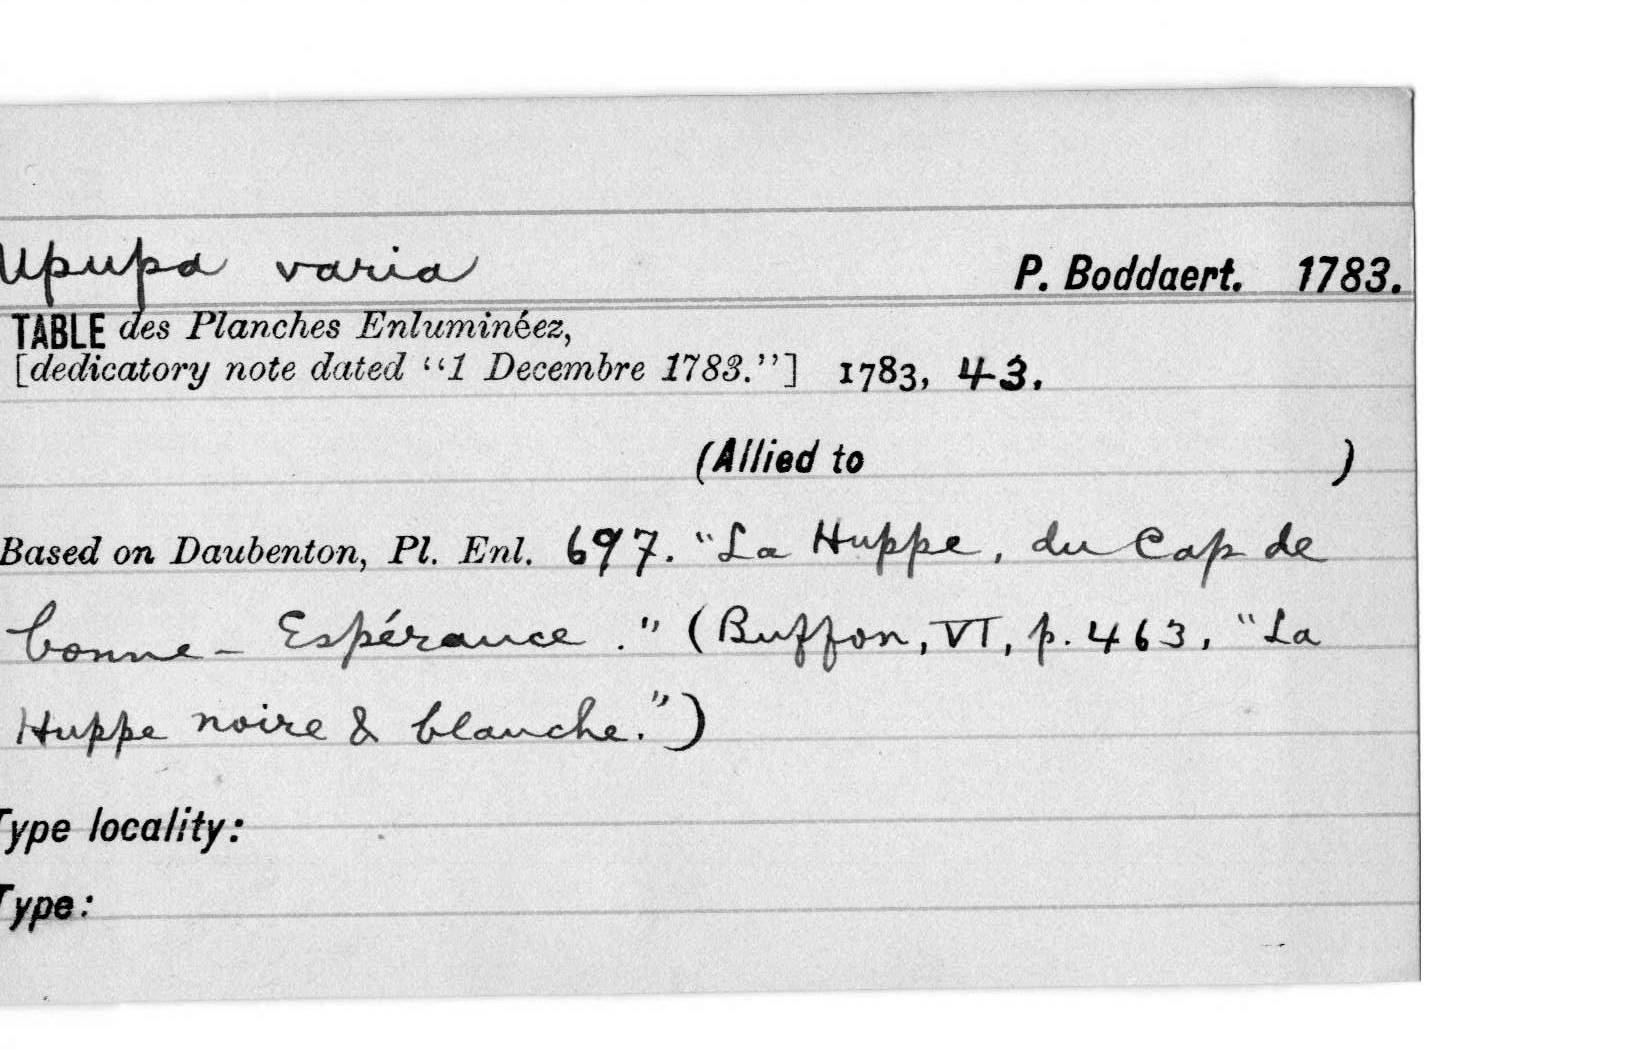 Upupa varia P. Boddaert. 1783.
TABLE des Planches Enluminéez,
[dedicatory note dated "1 Decembre 1783."] 1783, 43.
(Allied to )
Based on Daubenton, Pl. Enl. 697. "La Huppe, du Cap de
bonne-Espérance." (Buffon, VI, p. 463, "La
Huppe noire & blanche.")
Type locality:
Type: